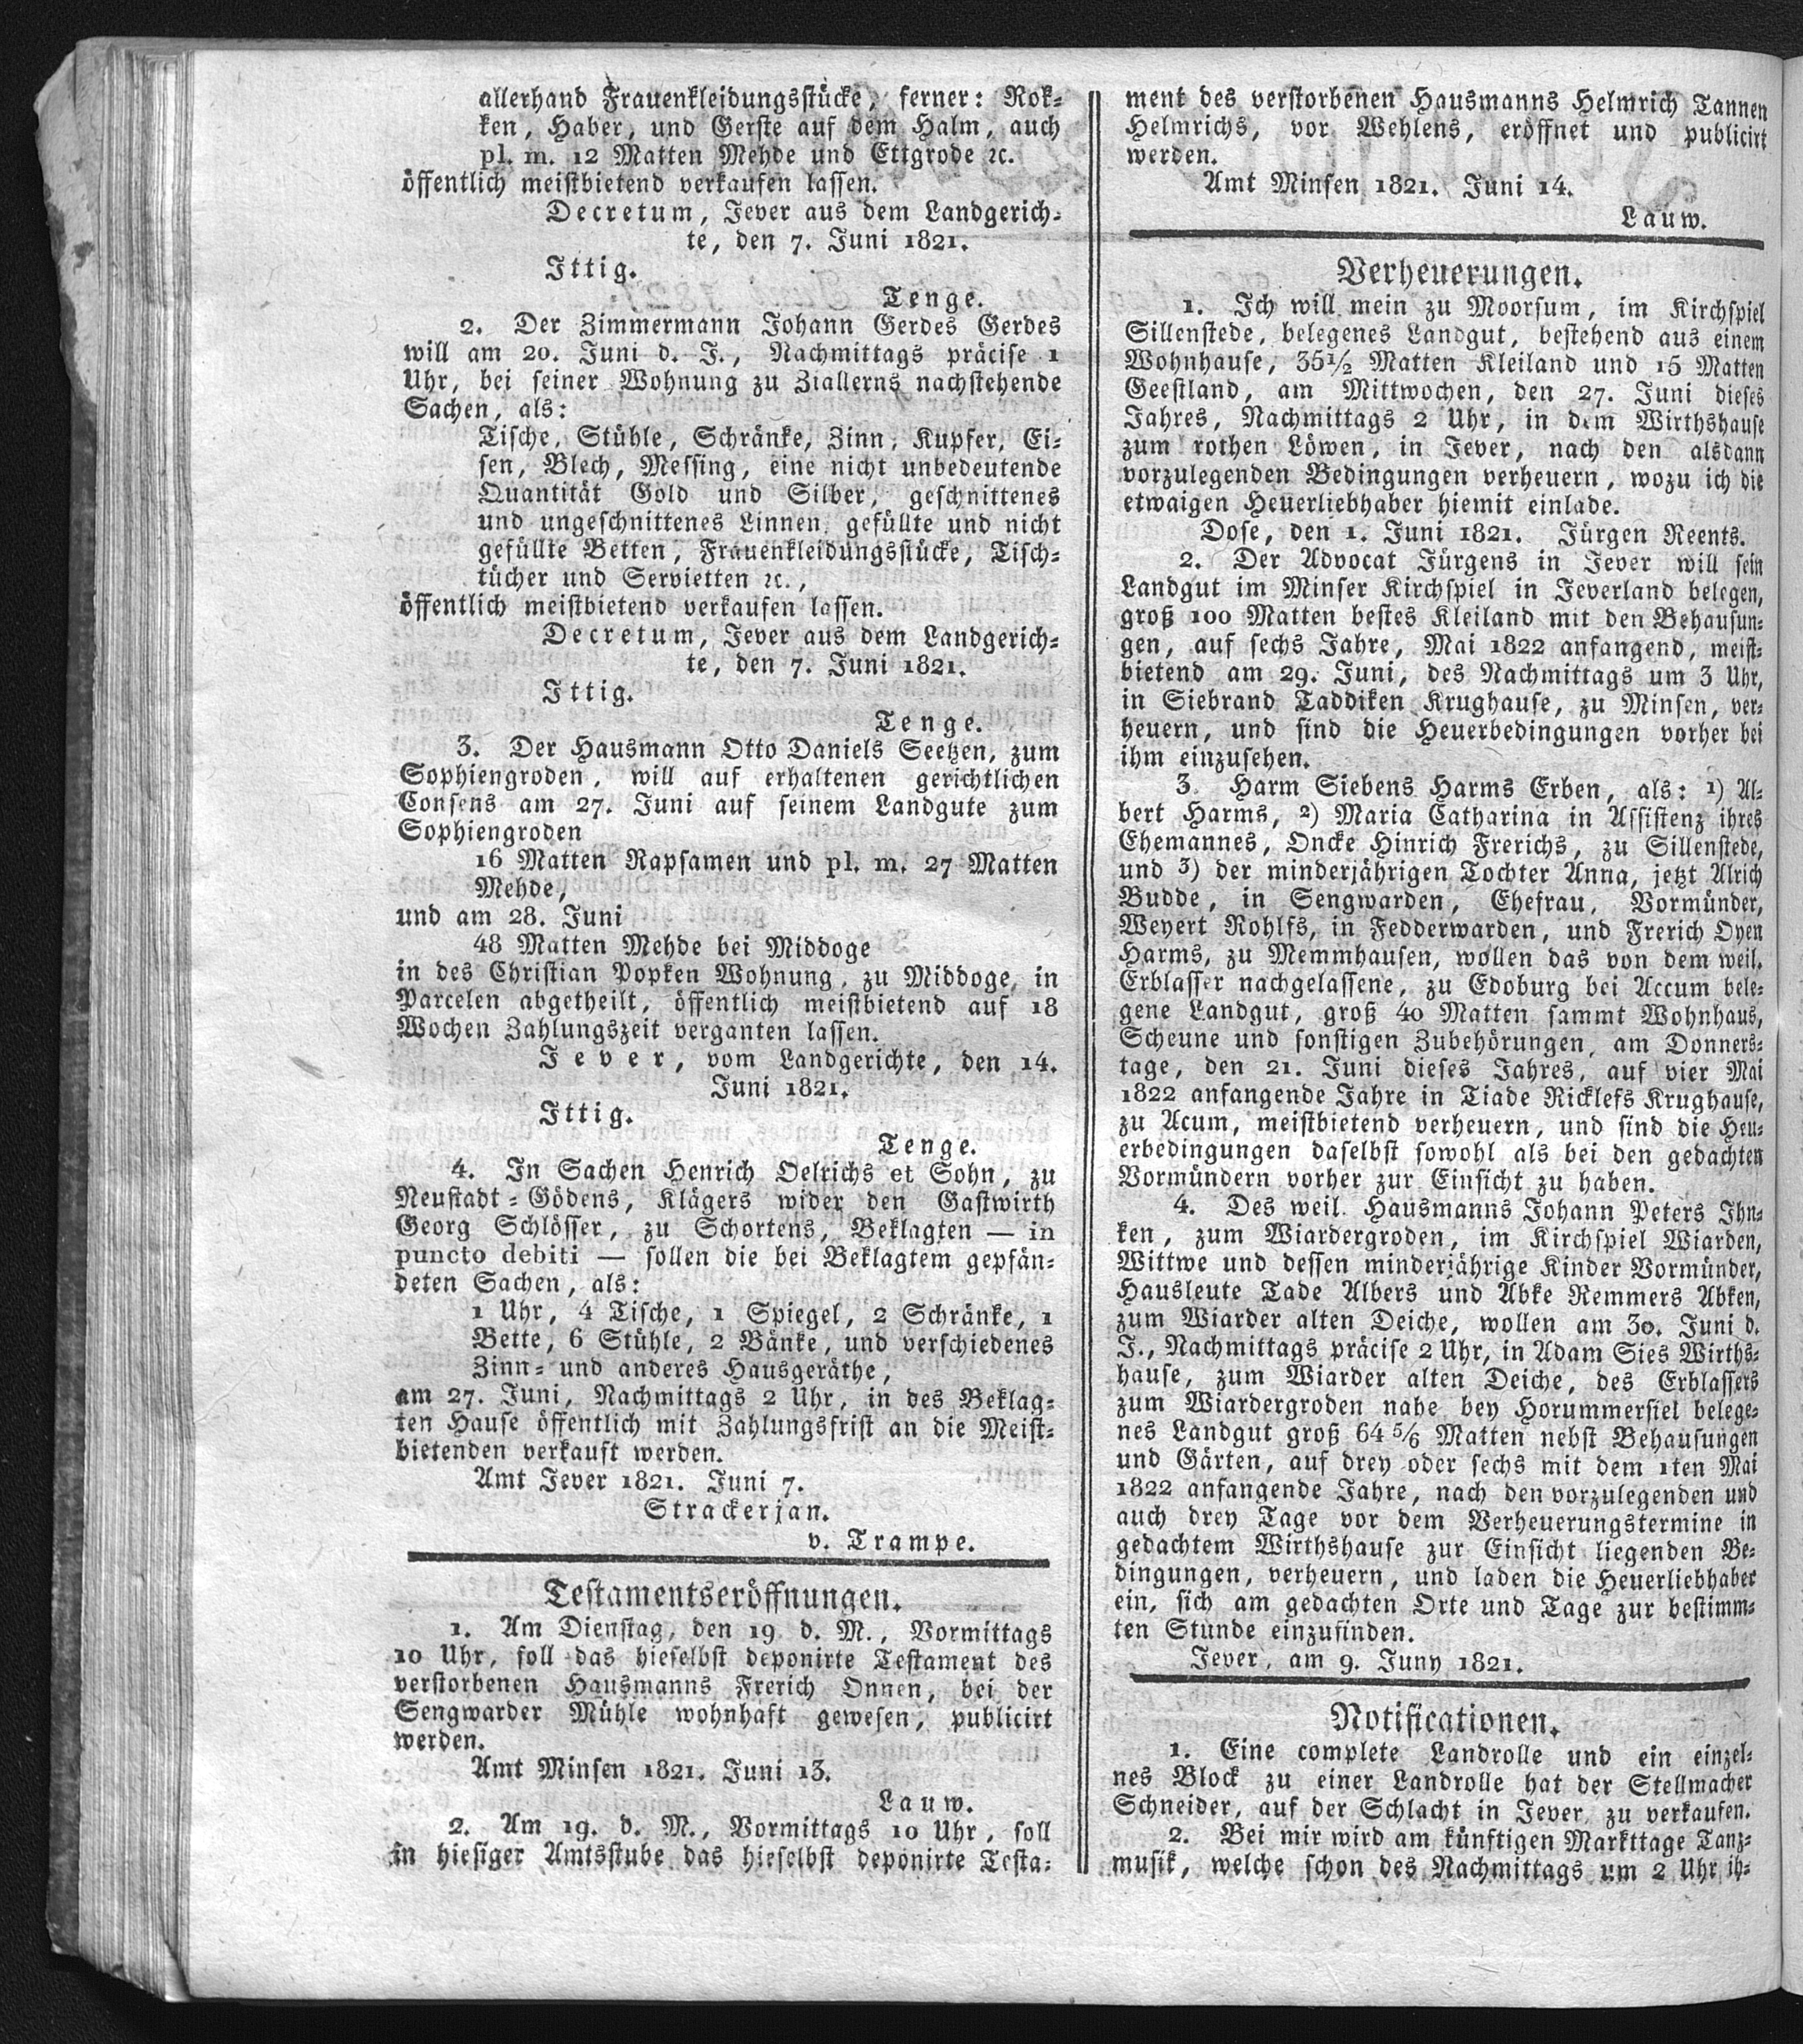 allerhand Frauenkleidungsstücke, ferner: Rok-
ken, Haber, und Gerste auf dem Halm, auch
pl. m. 12 Matten Mehde und Ettgrode ꝛc.
öffentlich meistbietend verkaufen lassen.
Decretum, Jever aus dem Landgerich-
te, den 7. Juni 1821.
Ittig.
Tenge.
2. Der Zimmermann Johann Gerdes Gerdes
will am 20. Juni d. J., Nachmittags präcise 1
Uhr, bei seiner Wohnung zu Ziallerns nachstehende
Sachen, als:
Tische, Stühle, Schränke, Zinn, Kupfer, Ei-
sen, Blech, Messing, eine nicht unbedeutende
Quantität Gold und Silber, geschnittenes
und ungeschnittenes Linnen, gefüllte und nicht
gefüllte Betten, Frauenkleidungsstücke, Tisch-
tücher und Servietten ꝛc.,
öffentlich meistbietend verkaufen lassen.
Decretum, Jever aus dem Landgerich-
te, den 7. Juni 1821.
Ittig.
Tenge.
3. Der Hausmann Otto Daniels Seetzen, zum
Sophiengroden, will auf erhaltenen gerichtlichen
Consens am 27. Juni auf seinem Landgute zum
Sophiengroden
16 Matten Rapsamen und pl. m. 27 Matten
Mehde,
und am 28. Juni
48 Matten Mehde bei Middoge
in des Christian Popken Wohnung, zu Middoge, in
Parcelen abgetheilt, öffentlich meistbietend auf 18
Wochen Zahlungszeit verganten lassen.
Jever, vom Landgerichte, den 14.
Juni 1821.
Ittig.
Tenge.
4. In Sachen Henrich Oelrichs et Sohn, zu
Neustadt-Gödens, Klägers wider den Gastwirth
Georg Schlösser, zu Schortens, Beklagten — in
puncto debiti — sollen die bei Beklagtem gepfän-
deten Sachen, als:
1 Uhr, 4 Tische, 1 Spiegel, 2 Schränke, 1
Bette, 6 Stühle, 2 Bänke, und verschiedenes
Zinn- und anderes Hausgeräthe,
am 27. Juni, Nachmittags 2 Uhr, in des Beklag-
ten Hause öffentlich mit Zahlungsfrist an die Meist-
bietenden verkauft werden.
Amt Jever 1821. Juni 7.
Strackerjan.
v. Trampe.
Testamentseröffnungen.
1. Am Dienstag, den 19 d. M., Vormittags
10 Uhr, soll das hieselbst deponirte Testament des
verstorbenen Hausmanns Frerich Onnen, bei der
Sengwarder Mühle wohnhaft gewesen, publicirt
werden.
Amt Minsen 1821. Juni 13.
Lauw.
2. Am 19. d. M., Vormittags 10 Uhr, soll
in hiesiger Amtsstube das hieselbst deponirte Testa-
ment des verstorbenen Hausmanns Helmrich Tannen
Helmrichs, vor Wehlens, eröffnet und publicirt
werden.
Amt Minsen 1821. Juni 14.
Lauw.
Verheuerungen.
1. Ich will mein zu Moorsum, im Kirchspiel
Sillenstede, belegenes Landgut, bestehend aus einem
Wohnhause, 35 1/2 Matten Kleiland und 15 Matten
Geestland, am Mittwochen, den 27. Juni dieses
Jahres, Nachmittags 2 Uhr, in dem Wirthshause
zum rothen Löwen, in Jever, nach den alsdann
vorzulegenden Bedingungen verheuern, wozu ich die
etwaigen Heuerliebhaber hiemit einlade.
Dose, den 1. Juni 1821. Jürgen Reents.
2. Der Advocat Jürgens in Jever will sein
Landgut im Minser Kirchspiel in Jeverland belegen,
groß 100 Matten bestes Kleiland mit den Behausun-
gen, auf sechs Jahre, Mai 1822 anfangend, meist-
bietend am 29. Juni, des Nachmittags um 3 Uhr,
in Siebrand Taddiken Krughause, zu Minsen, ver-
heuern, und sind die Heuerbedingungen vorher bei
ihm einzusehen.
3. Harm Siebens Harms Erben, als: 1) Al-
bert Harms, 2) Maria Catharina in Assistenz ihres
Ehemannes, Oncke Hinrich Frerichs, zu Sillenstede,
und 3) der minderjährigen Tochter Anna, jetzt Alrich
Budde, in Sengwarden, Ehefrau, Vormünder,
Weyert Rohlfs, in Fedderwarden, und Frerich Oyen
Harms, zu Memmhausen, wollen das von dem weil.
Erblasser nachgelassene, zu Edoburg bei Accum bele-
gene Landgut, groß 40 Matten sammt Wohnhaus,
Scheune und sonstigen Zubehörungen, am Donners-
tage, den 21. Juni dieses Jahres, auf vier Mai
1822 anfangende Jahre in Tiade Ricklefs Krughause,
zu Acum, meistbietend verheuern, und sind die Heu-
erbedingungen daselbst sowohl als bei den gedachten
Vormündern vorher zur Einsicht zu haben.
4. Des weil. Hausmanns Johann Peters Ihn-
ken, zum Wiardergroden, im Kirchspiel Wiarden,
Wittwe und dessen minderjährige Kinder Vormünder,
Hausleute Tade Albers und Abke Remmers Abken,
zum Wiarder alten Deiche, wollen am 30. Juni d.
J., Nachmittags präcise 2 Uhr, in Adam Sies Wirths-
hause, zum Wiarder alten Deiche, des Erblassers
zum Wiardergroden nahe bey Horummersiel belege-
nes Landgut groß 64 5/6 Matten nebst Behausungen
und Gärten, auf drey oder sechs mit dem 1ten Mai
1822 anfangende Jahre, nach den vorzulegenden und
auch drey Tage vor dem Verheuerungstermine in
gedachtem Wirthshause zur Einsicht liegenden Be-
dingungen, verheuern, und laden die Heuerliebhaber
ein, sich am gedachten Orte und Tage zur bestimm-
ten Stunde einzufinden.
Jever, am 9. Juny 1821.
Notificationen.
1. Eine complete Landrolle und ein einzel-
nes Block zu einer Landrolle hat der Stellmacher
Schneider, auf der Schlacht in Jever, zu verkaufen.
2. Bei mir wird am künftigen Markttage Tanz-
musik, welche schon des Nachmittags um 2 Uhr ih-